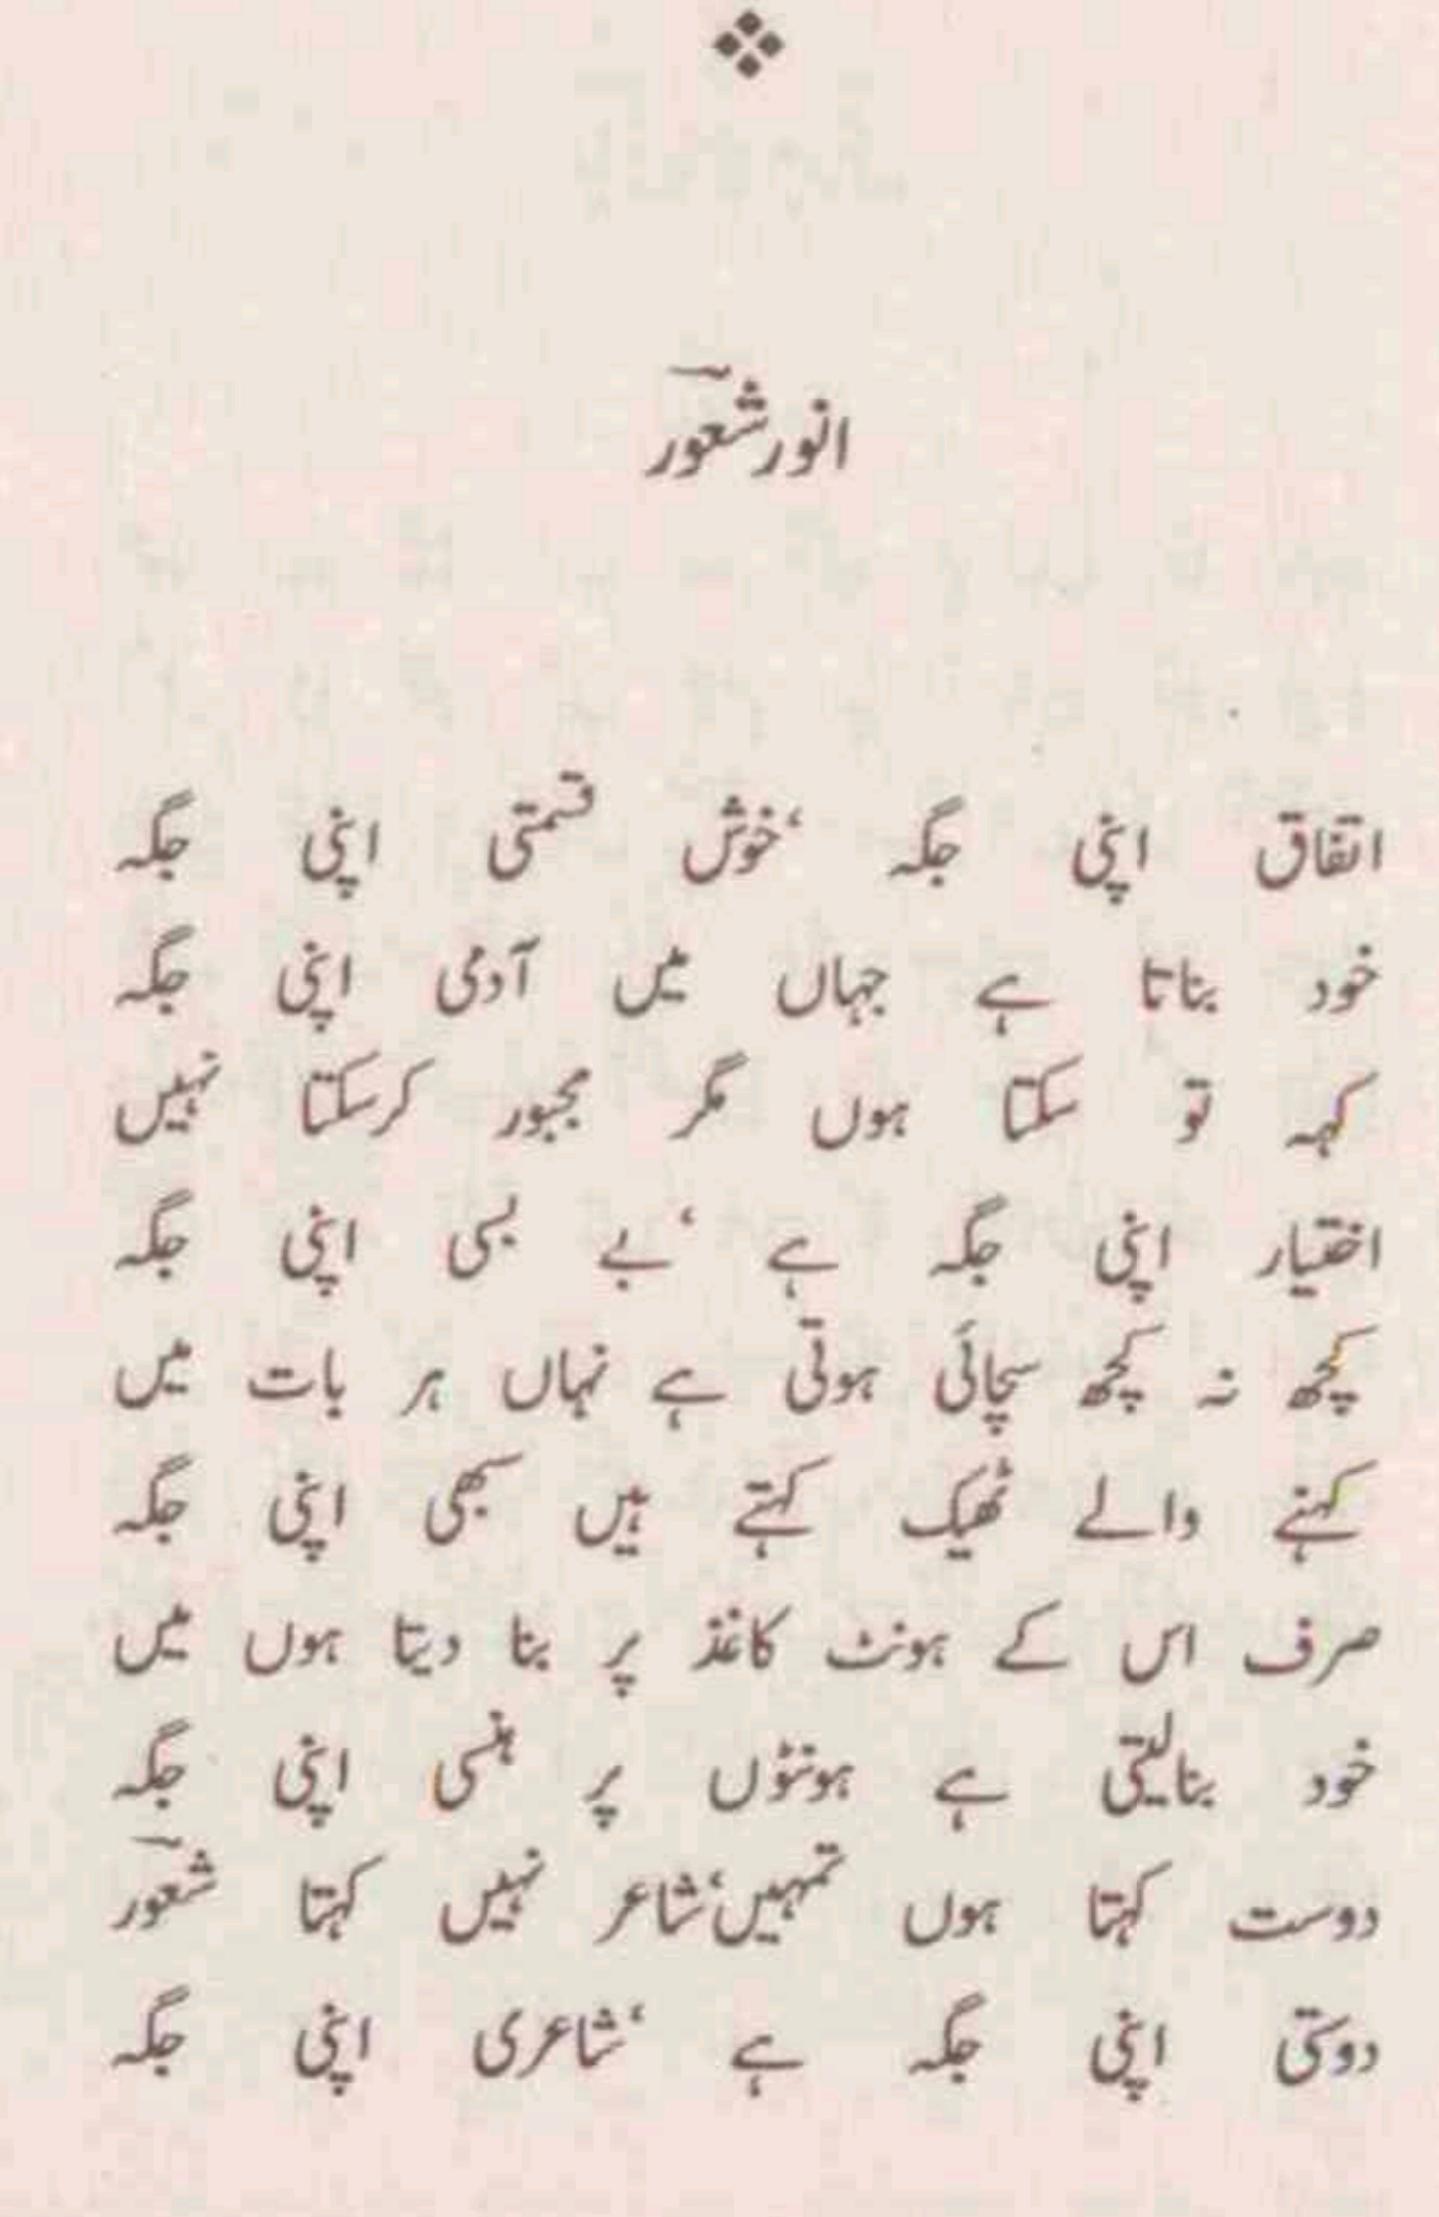 انور شعورؔ
اتفاق اپنی جگہ ‘خوش قسمتی اپنی جگہ
خود بناتا ہے جہاں میں آدمی اپنی جگہ
کہہ تو سکتا ہوں مگر مجبور کرسکتا نہیں
اختیار اپنی جگہ ہے ‘بے بسی اپنی جگہ
کچھ نہ کچھ سچائی ہوتی ہے نہاں ہر بات میں
کہنے والے ٹھیک کہتے ہیں سبھی اپنی جگہ
صرف اس کے ہونٹ کاغذ پر بنا دیتا ہوں میں
خود بنالیتی ہے ہونٹوں پر ہنسی اپنی جگہ
دوست کہتا ہوں تمہیں‘شاعر نہیں کہتا شعورؔ
دوستی اپنی جگہ ہے ‘شاعری اپنی جگہ